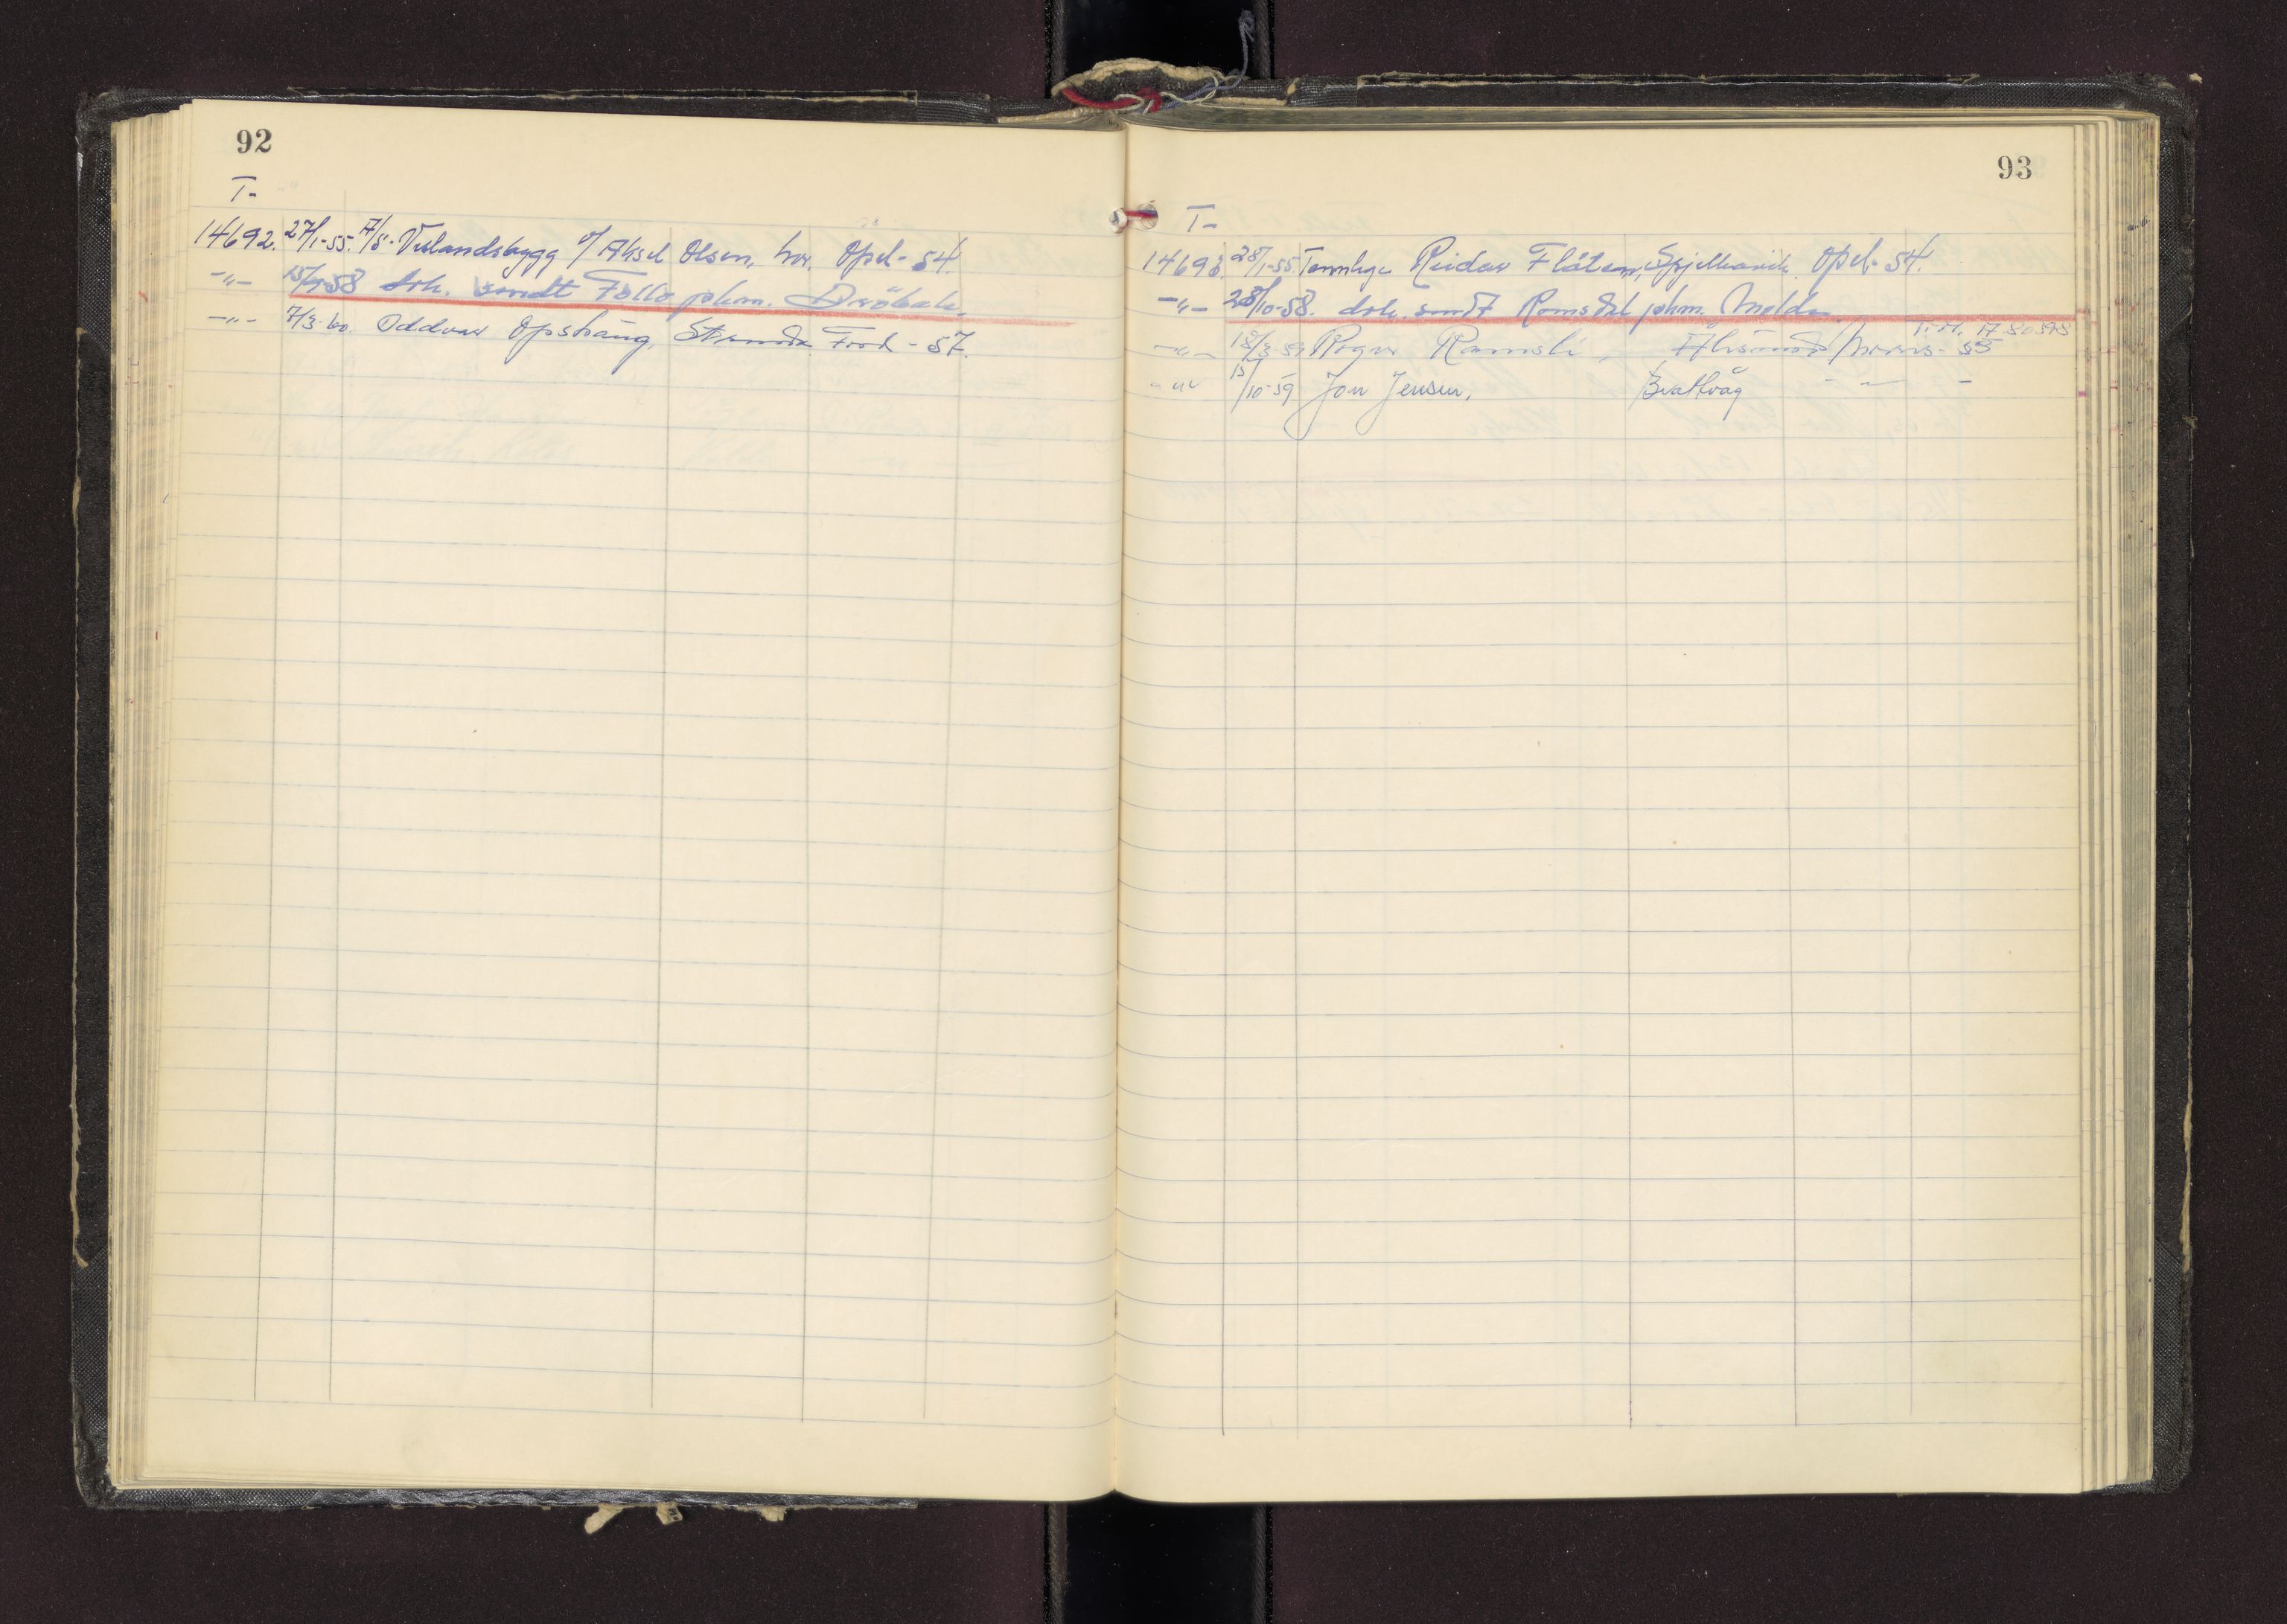 92
T-
14692. 27/1-55. A/S. Vestlandsbygg v/ Aksel Olsen, her. Opel - 54.
-"- 15/4-58 dok. sendt Follo pkm. Drøbak.
-"- 7/3-60. Oddvar Opshaug, Stranda Ford - 57.
93
T-
14693. 28/1-55 Tannlege Reidar Flåten, Spjelkavik. Opel - 54.
-"- 28/10-58. dok. sendt Romsdal pkm. Molde.
T.M. 17-80598
-"- 18/3-59 Roger Ramsli, Ålesund Morris - 55
-"- 15/10-59 Jon Jensen, Brattvåg - " -